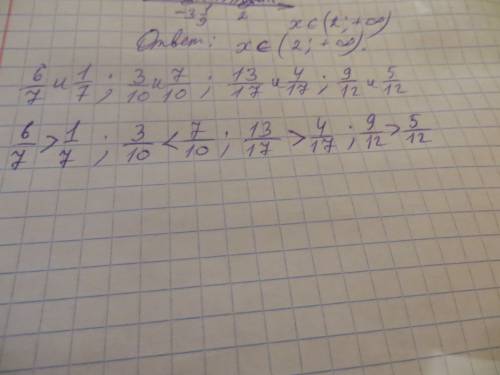 -3 1/9 2 x∈(2;+∞)
Ответ: x∈(2;+∞).
6/7 и 1/7; 3/10 и 7/10; 13/17 и 4/17; 9/12 и 5/12
6/7 > 1/7; 3/10 < 7/10; 13/17 > 4/17; 9/12 > 5/12